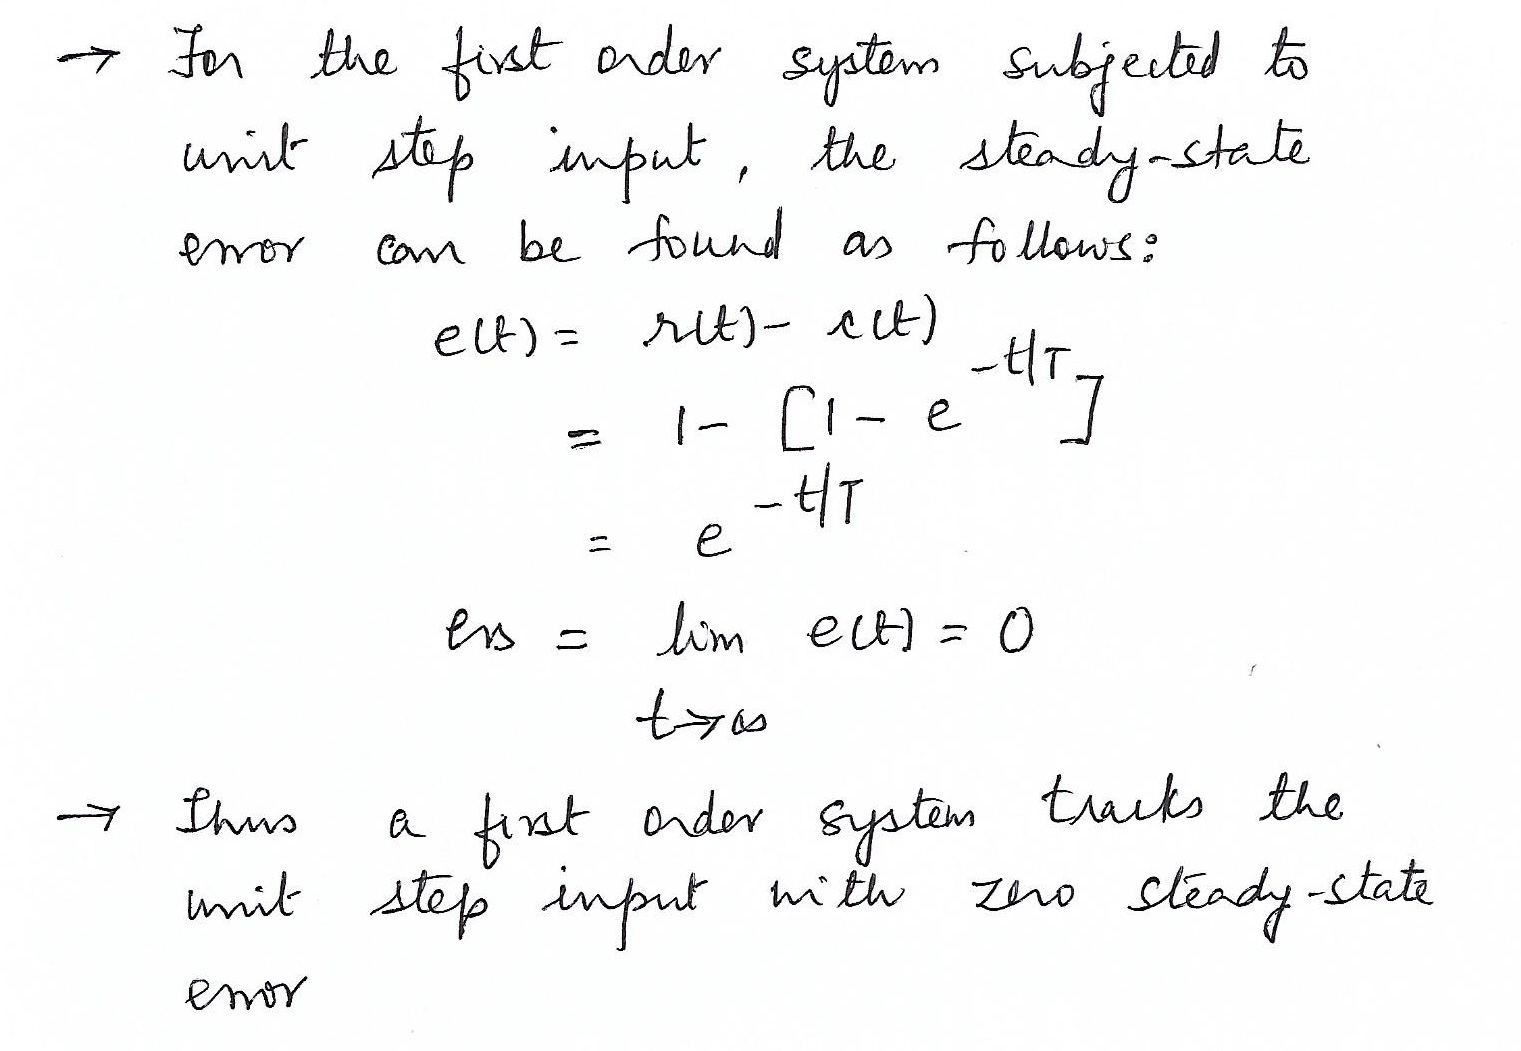 → For the first order system subjected to
unit step input, the steady-state
error can be found as follows:
e(t) = r(t) - c(t)
= 1 - [1 - e^{-t/T}]
= e^{-t/T}
ess = lim e(t) = 0
t→∞
→ Thus a first order system tracks the
unit step input with zero steady-state
error